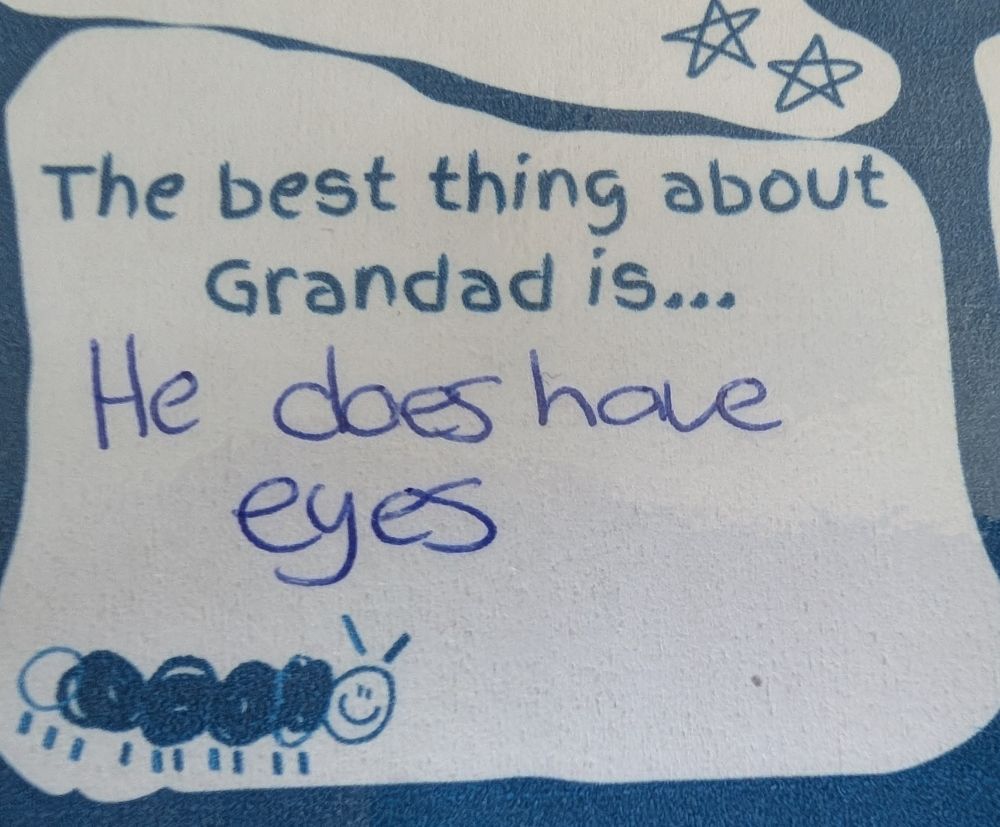 The best thing about
Grandad is...
He does have
eyes